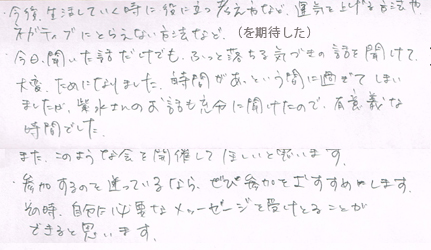 ・今後、生活していく時に役に立つ考え方など、運気を上げる方法や
ネガティブにとらえない方法など。(を期待した)
・今日、聞いた話だけでも、ふっと落ちる気づきの話を聞けて、
大変、ためになりました。時間があっという間に過ぎてしまい
ましたが、紫水さんのお話も充分に聞けたので、有意義な
時間でした。
また、このような会を開催してほしいと思います。
・参加するのを迷っているなら、ぜひ参加をおすすめします。
その時、自分に必要なメッセージを受けとることが
できると思います。